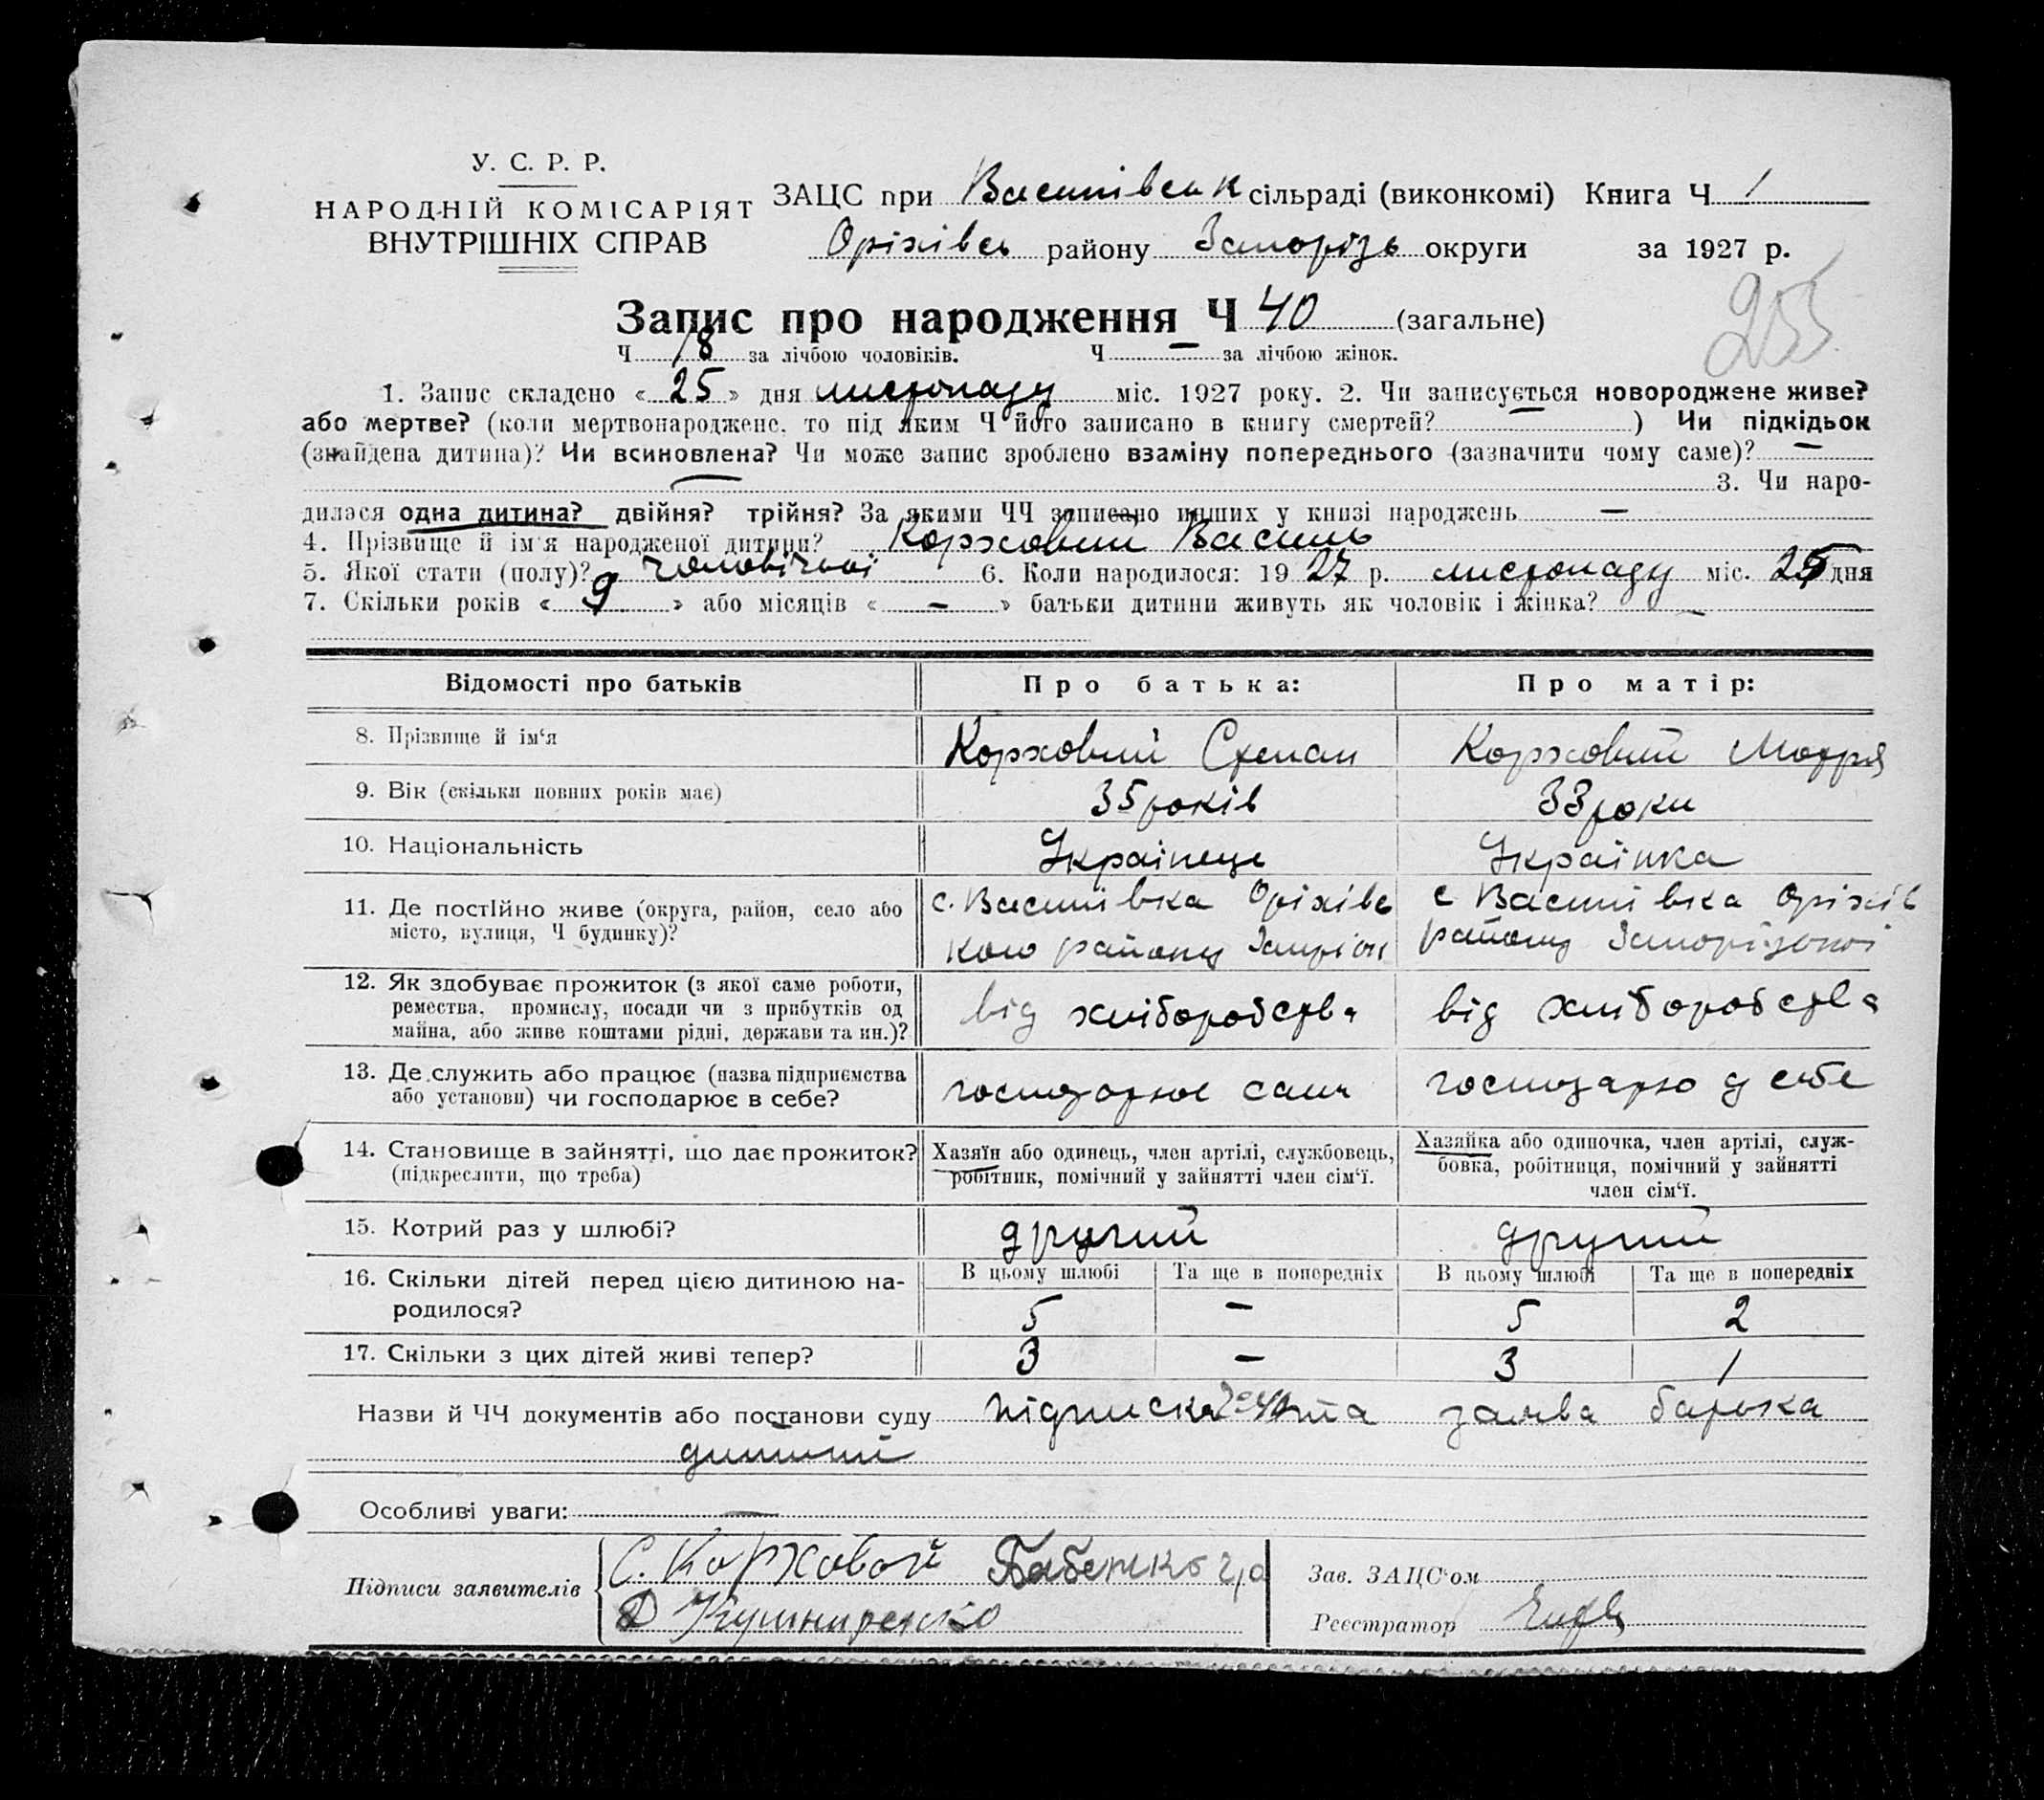 У. С. Р. Р.
НАРОДНІЙ КОМІСАРІЯТ
ВНУТРІШНІХ СПРАВ
ЗАЦС при Василівськ сільраді (виконкомі) Книга Ч 1
Оріхівсь району Запорізь округи за 1927 р.
255
Запис про народження Ч 40 (загальне)
Ч 18 за лічбою чоловіків. Ч — за лічбою жінок.
1. Запис складено « 25 » дня листопаду міс. 1927 року. 2. Чи записується новороджене живе?
або мертве? (коли мертвонароджене, то під яким Ч його записано в книгу смертей? — ) Чи підкідьок
(знайдена дитина)? Чи всиновлена? Чи може запис зроблено взаміну попереднього (зазначити чому саме)? —
— 3. Чи наро-
дилася одна дитина? двійня? трійня? За якими ЧЧ записано инших у книзі народжень —
4. Прізвище й ім'я народженої дитини? Коржовий Василь
5. Якої стати (полу)? чоловічої 6. Коли народилося: 19 27 р. листопаду міс. 25 дня
7. Скільки років « 9 » або місяців « — » батьки дитини живуть як чоловік і жінка? —
Відомості про батьків Про батька: Про матір:
8. Прізвище й ім‘я Коржовий Степан Коржовий Мотря
9. Вік (скільки повних років має) 35 років 33 роки
10. Національність Українець Українка
11. Де постійно живе (округа, район, село або місто, вулиця, Ч будинку)? с. Василівка Оріхівс кого району с Василівка Оріхів району Запорізької
12. Як здобуває прожиток (з якої саме роботи, ремества, промислу, посади чи з прибутків од майна, або живе коштами рідні, держави та ин.)? від хліборобства від хліборобства
13. Де служить або працює (назва підприємства або установи) чи господарює в себе? господарює сам господарю у себе
14. Становище в зайнятті, що дає прожиток? (підкреслити, що треба) Хазяїн або одинець, член артілі, службовець, робітник, помічний у зайнятті член сім‘ї. Хазяйка або одиночка, член артілі, служ-бовка, робітниця, помічний у зайнятті член сім‘ї.
15. Котрий раз у шлюбі? другий другий
16. Скільки дітей перед цією дитиною на-родилося? В цьому шлюбі Та ще в попередніх В цьому шлюбі Та ще в попередніх
5 — 5 2
17. Скільки з цих дітей живі тепер? 3 — 3 1
Назви й ЧЧ документів або постанови суду підписка та заява батька
дитини
Особливі уваги: —
Підписи заявителів С. Коржовой Бабенко
Д Кушниренко
Зав. ЗАЦС‘ом
Реєстратор